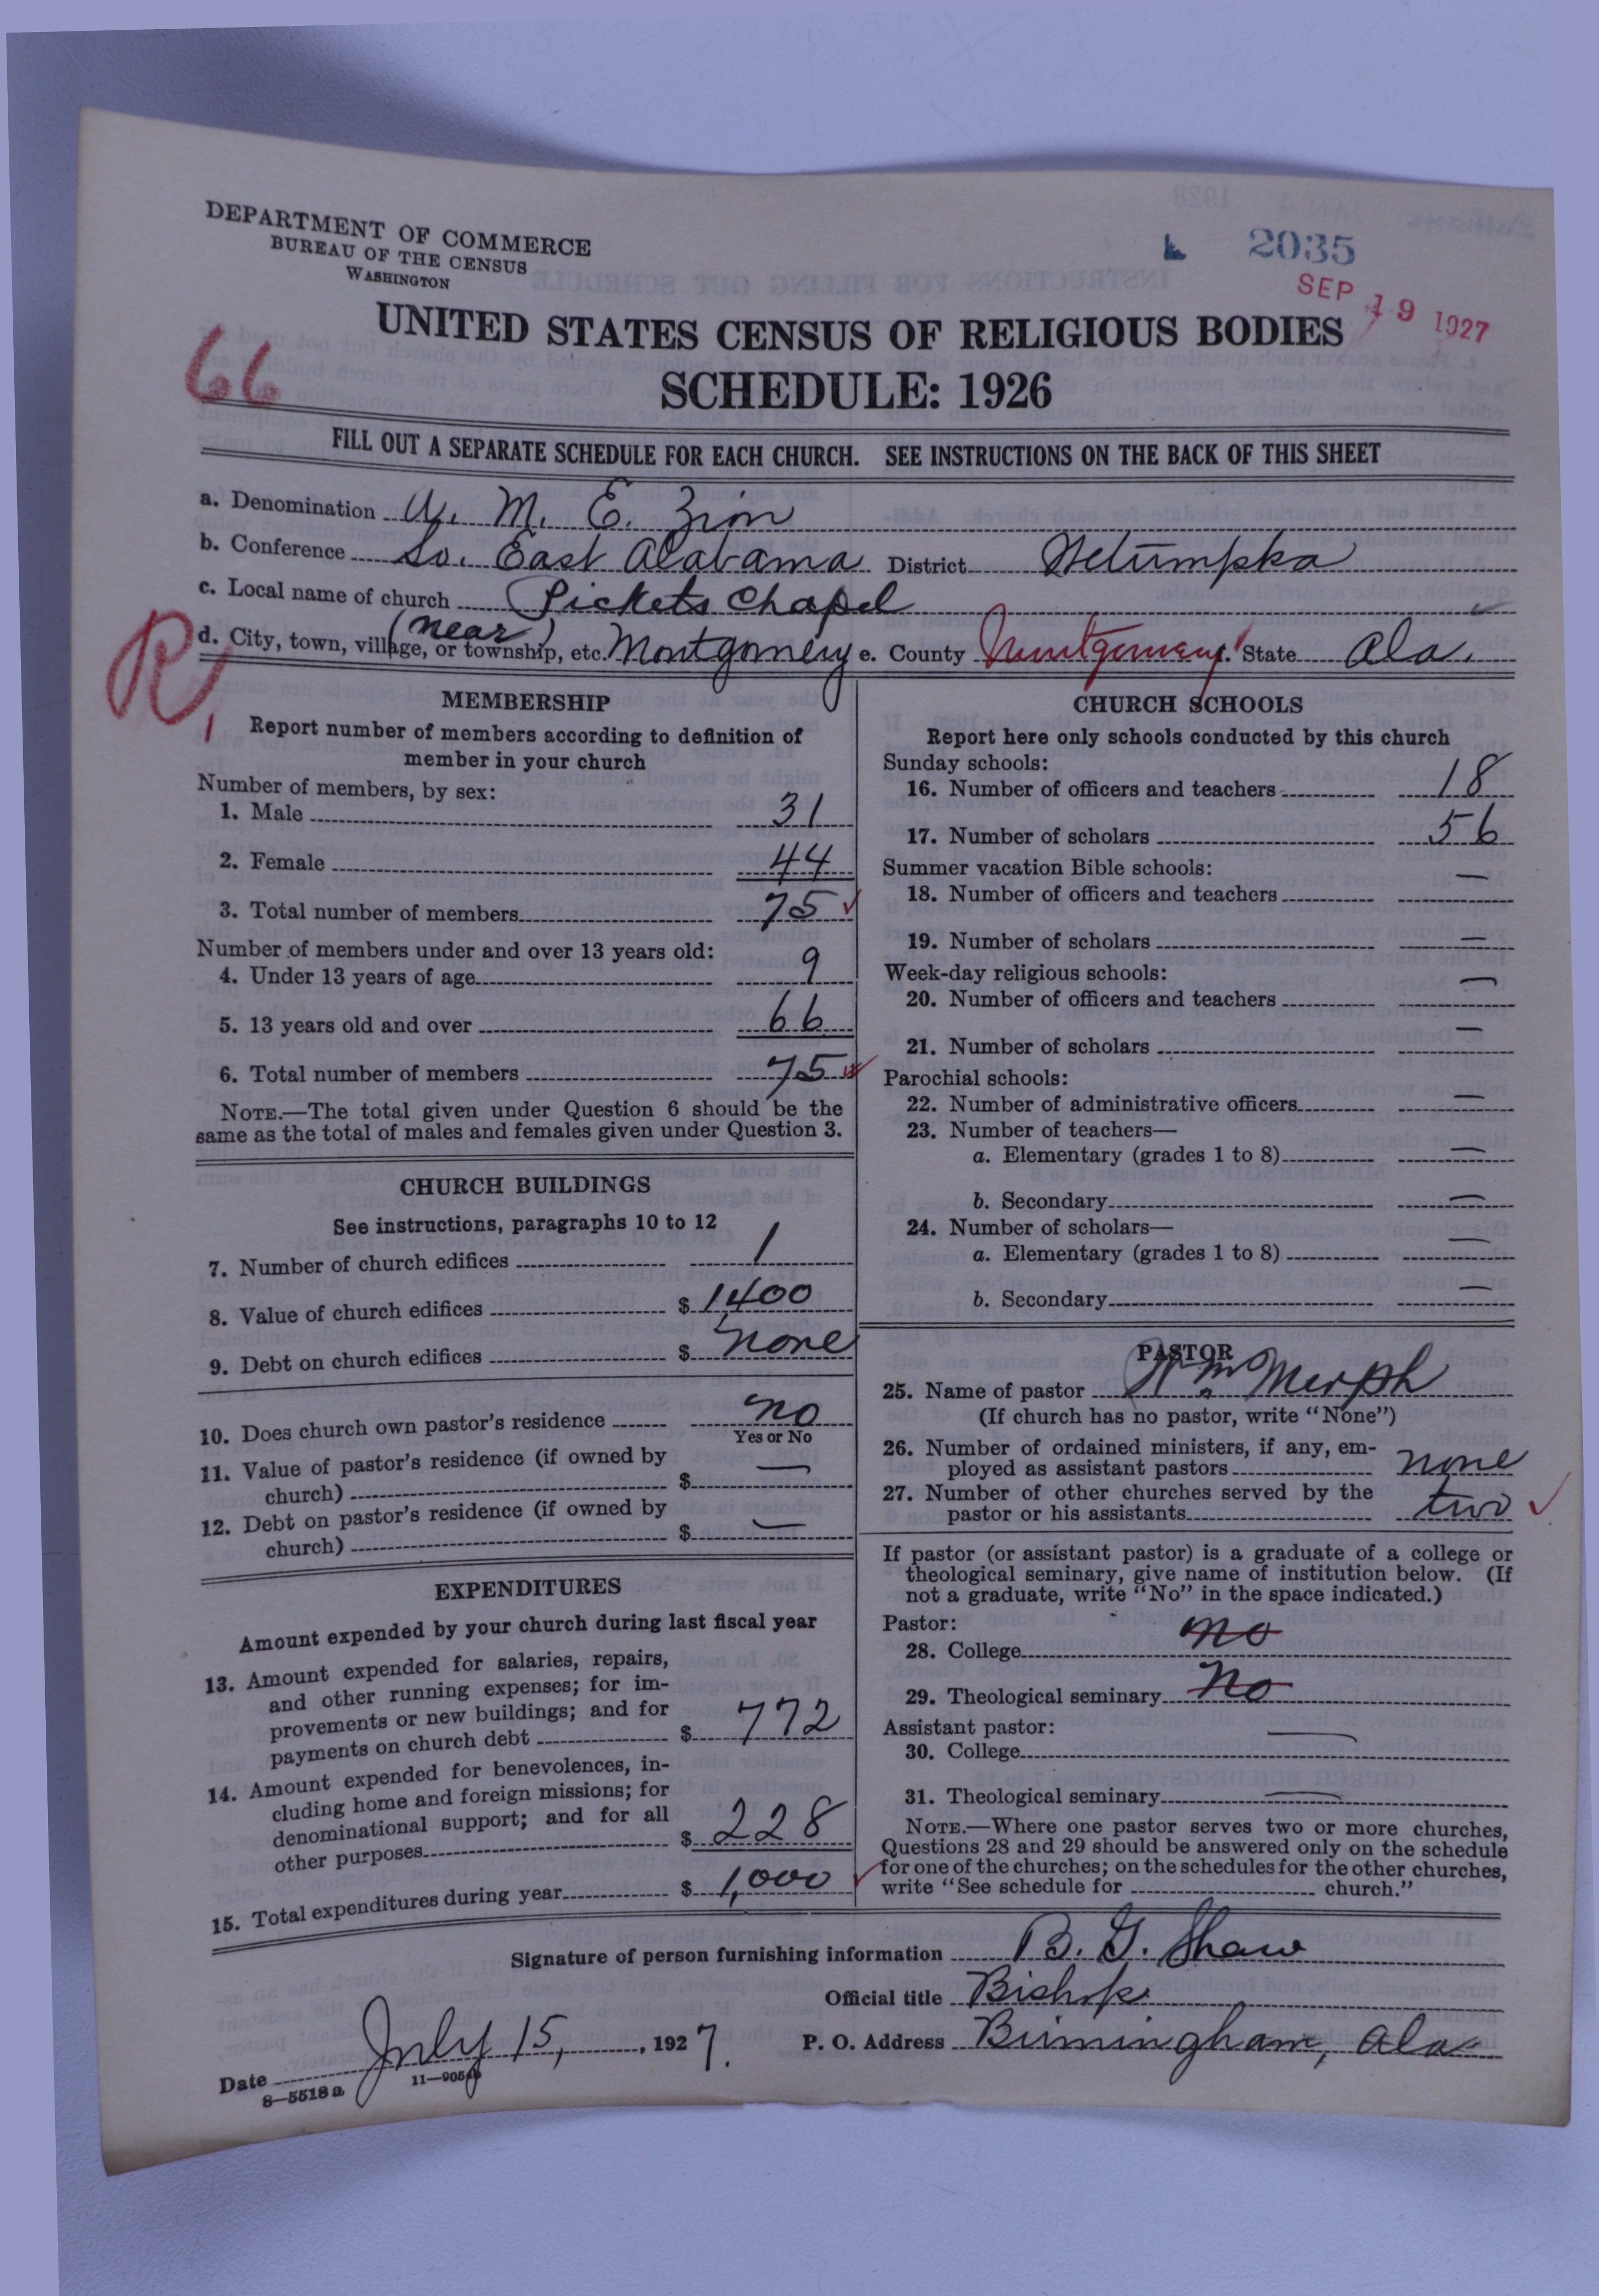 DEPARTMENT OF COMMERCE
BUREAU OF THE CENSUS
WASHINGTON
2035
SEP 19 1927
UNITED STATES CENSUS OF RELIGIOUS BODIES
66
SCHEDULE: 1926
FILL OUT A SEPARATE SCHEDULE FOR EACH CHURCH. SEE INSTRUCTIONS ON THE BACK OF THIS SHEET
a. Denomination A. M. E. Zion
b. Conference So. East Alabama District Wetumpka
c. Local name of church Pickets Chapel
R,
d. City, town, village, or township, etc. (near) Montgomery e. County Montgomery State Ala.
MEMBERSHIP
Report number of members according to definition of
member in your church
Number of members, by sex:
1. Male 31
2. Female 44
3. Total number of members 75
Number of members under and over 13 years old:
4. Under 13 years of age 9
5. 13 years old and over 66
6. Total number of members 75
NOTE.—The total given under Question 6 should be the
same as the total of males and females given under Question 3.
CHURCH BUILDINGS
See instructions, paragraphs 10 to 12
7. Number of church edifices 1
8. Value of church edifices $ 1400
9. Debt on church edifices $ none
10. Does church own pastor's residence no
Yes or No
11. Value of pastor's residence (if owned by
church) $ —
12. Debt on pastor's residence (if owned by
church) $ —
EXPENDITURES
Amount expended by your church during last fiscal year
13. Amount expended for salaries, repairs,
and other running expenses; for im-
provements or new buildings; and for
payments on church debt $ 772
14. Amount expended for benevolences, in-
cluding home and foreign missions; for
denominational support; and for all
other purposes $ 228
15. Total expenditures during year $ 1,000
CHURCH SCHOOLS
Report here only schools conducted by this church
Sunday schools:
16. Number of officers and teachers 18
17. Number of scholars 56
Summer vacation Bible schools:
18. Number of officers and teachers —
19. Number of scholars —
Week-day religious schools:
20. Number of officers and teachers —
21. Number of scholars —
Parochial schools:
22. Number of administrative officers —
23. Number of teachers—
a. Elementary (grades 1 to 8) —
b. Secondary —
24. Number of scholars—
a. Elementary (grades 1 to 8) —
b. Secondary —
PASTOR
25. Name of pastor Wm Merph
(If church has no pastor, write "None")
26. Number of ordained ministers, if any, em-
ployed as assistant pastors none
27. Number of other churches served by the
pastor or his assistants two
If pastor (or assistant pastor) is a graduate of a college or
theological seminary, give name of institution below. (If
not a graduate, write "No" in the space indicated.)
Pastor:
28. College no
29. Theological seminary No
Assistant pastor:
30. College —
31. Theological seminary —
NOTE.—Where one pastor serves two or more churches,
Questions 28 and 29 should be answered only on the schedule
for one of the churches; on the schedules for the other churches,
write "See schedule for church."
Signature of person furnishing information B. G. Shaw
Official title Bishop
Date July 15, 1927. P. O. Address Birmingham, Ala
8—5518 a